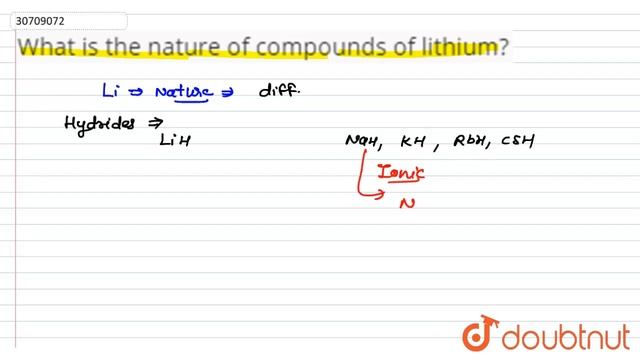 30709072
What is the nature of compounds of lithium?
Li ⇒ Nature ⇒ diff.
Hydrides ⇒
LiH NaH, KH, RbH, CSH
Ionic
N
doubtnut